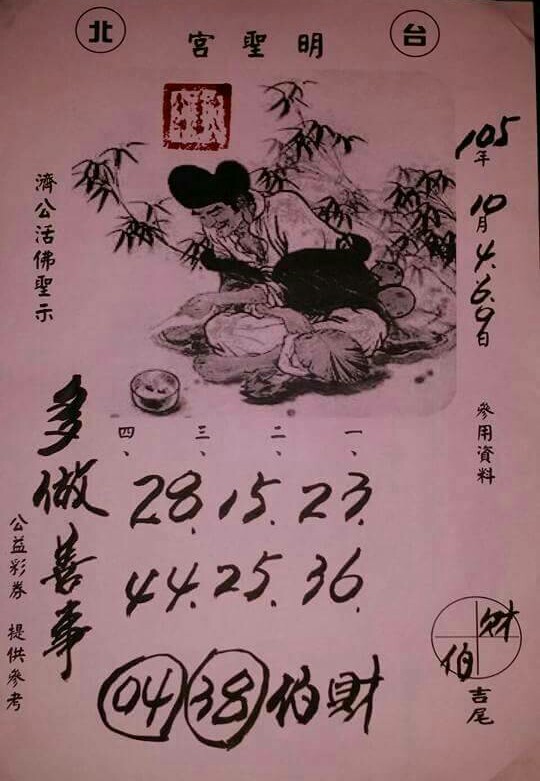 台北
明聖宮
105年10月4.6.9日
參用資料
濟公活佛聖示
一、二、三、四、
28.15.23.
44.25.36.
04 38 伯財
多做善事
公益彩券 提供參考
財
伯
吉尾